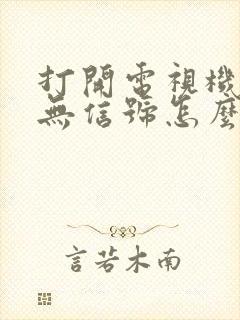 打開電視機
無信號怎麼
言若木南